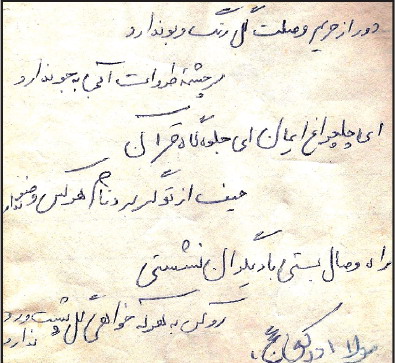 دور از حریم وصلت گل رنگ و بو ندارد
سرچشمهٔ طراوت آبی به جو ندارد
ای چلچراغ ایمان ای جلوه گاه قرآن
حیف از تو گر برد نام هر کس وضو ندارد
راه وصال بستی با دیگران نشستی
رو کن به هر که خواهی گل پشت و رو ندارد
مولا